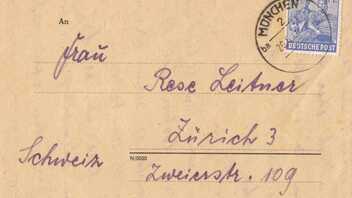 An
MÜNCHEN
DEUTSCHE POST
Frau
Rese Leitner
Zürich 3
Schweiz
N/0000
Zweierstr. 109